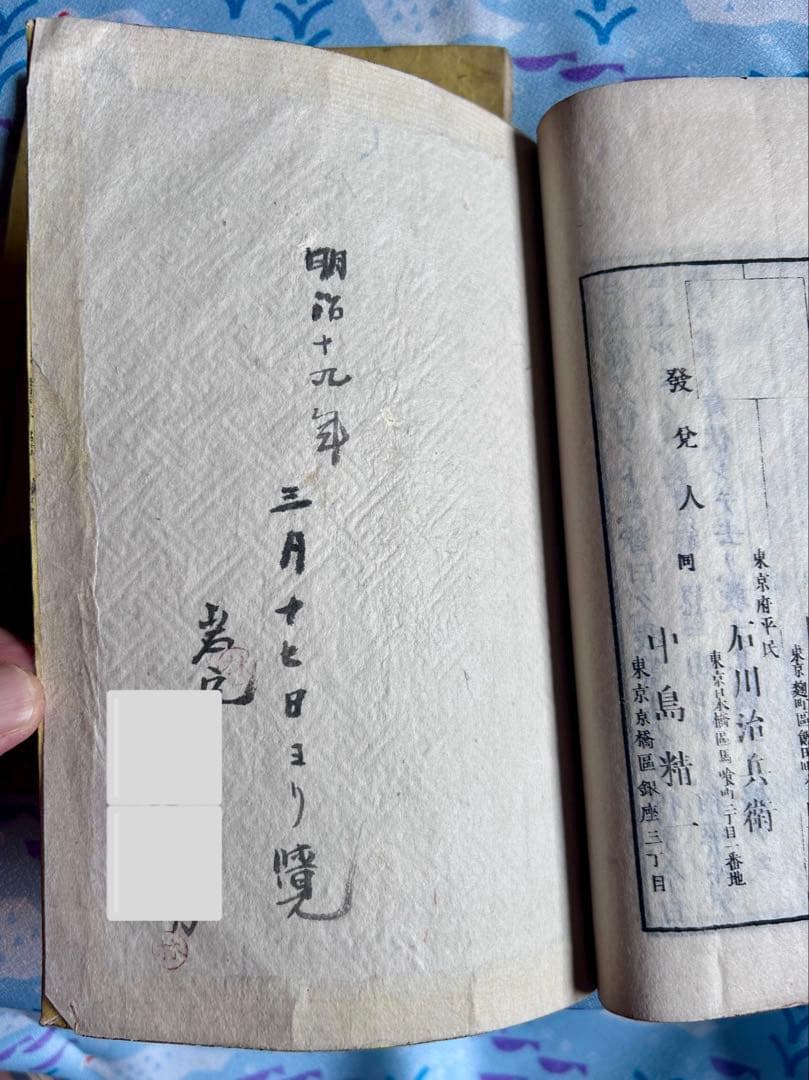 東京麹町區飯田町
東京府平民
石川治兵衛
東京日本橋區馬喰町二丁目一番地
發兌人 同 中島精一
東京京橋區銀座三丁目
明治十九年三月十七日ヨリ覧